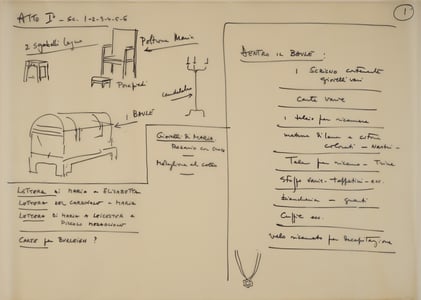 ATTO I° - Sc. 1-2-3-4-5-6
2 Sgabelli legno
Poltrona Maria
Poggiapiedi
Candelabro
1 BAULE
GIOIELLI DI MARIA
Rosario con Croce
Medaglione al collo
LETTERA DI MARIA A ELISABETTA
LETTERA DEL CARDINALE A MARIA
LETTERA DI MARIA A LEICESTER e
PICCOLO MEDAGLIONE
CARTE per BURLEIGH ?
1
DENTRO IL BAULE :
1 SCRIGNO contenente
gioielli vari
Carte varie
1 telaio per ricamare
matasse di lana e cotone
colorati - Nastri -
Tela per ricamo - Trine
Stoffe varie - tappetini - ecc.
biancheria - guanti
Cuffie ecc.
velo ricamato per Decapitazione